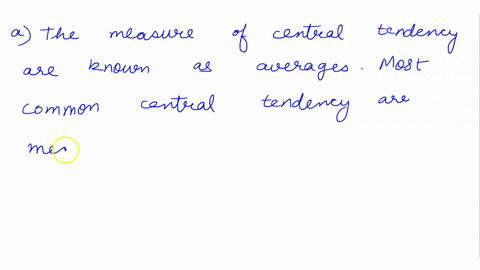 a) The measure of central tendency
are known as averages. Most
common central tendency are
me